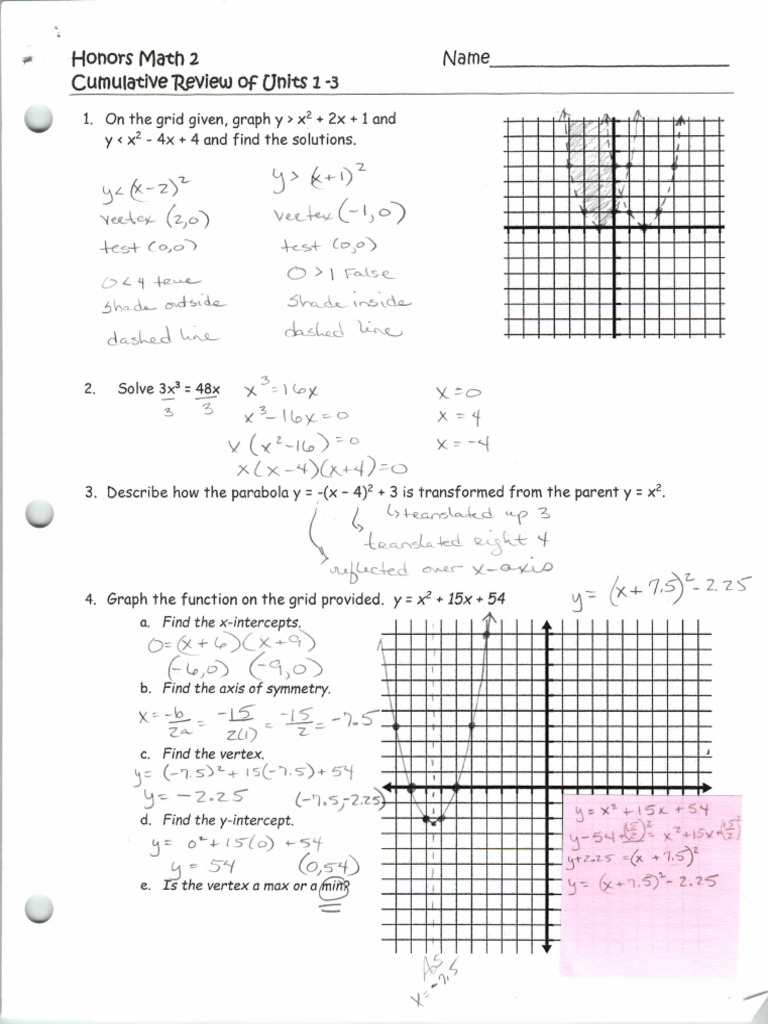 Honors Math 2
Name
Cumulative Review of Units 1 -3
1. On the grid given, graph y > x² + 2x + 1 and
y < x² - 4x + 4 and find the solutions.
y < (x-2)²
vertex (2,0)
test (0,0)
0 < 4 true
shade outside
dashed line
y > (x+1)²
vertex (-1,0)
test (0,0)
0 > 1 False
shade inside
dashed line
2. Solve 3x³ = 48x
3 3
x³ = 16x
x³ - 16x = 0
x (x² - 16) = 0
x (x - 4)(x + 4) = 0
x = 0
x = 4
x = -4
3. Describe how the parabola y = -(x – 4)² + 3 is transformed from the parent y = x².
↳ translated up 3
translated right 4
reflected over x-axis
4. Graph the function on the grid provided. y = x² + 15x + 54
y = (x + 7.5)² - 2.25
a. Find the x-intercepts.
0 = (x + 6)(x + 9)
(-6,0) (-9,0)
b. Find the axis of symmetry.
x = -b/2a = -15/2(1) = -15/2 = -7.5
c. Find the vertex.
y = (-7.5)² + 15(-7.5) + 54
y = -2.25 (-7.5, -2.25)
d. Find the y-intercept.
y = 0² + 15(0) + 54
y = 54 (0,54)
e. Is the vertex a max or a min?
AoS
x = -7.5
y = x² + 15x + 54
y - 54 + (15/2)² = x² + 15x + (15/2)²
y + 2.25 = (x + 7.5)²
y = (x + 7.5)² - 2.25